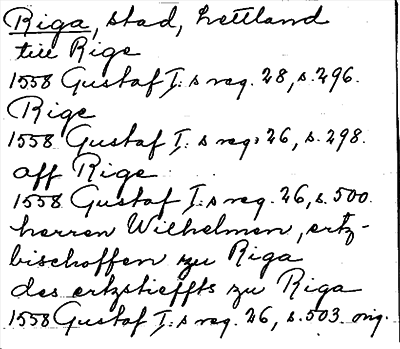 Riga, stad, Lettland
till Rige
1558 Gustaf I:s reg. 28, s. 296.
Rige
1558 Gustaf I:s reg. 26, s. 298.
aff Rige
1558 Gustaf I:s reg. 26, s. 500.
herren Wilhelmen, ertz-
bischoffen zu Riga
des ertzstieffts zu Riga
1558 Gustaf I:s reg. 26, s. 503 orig.